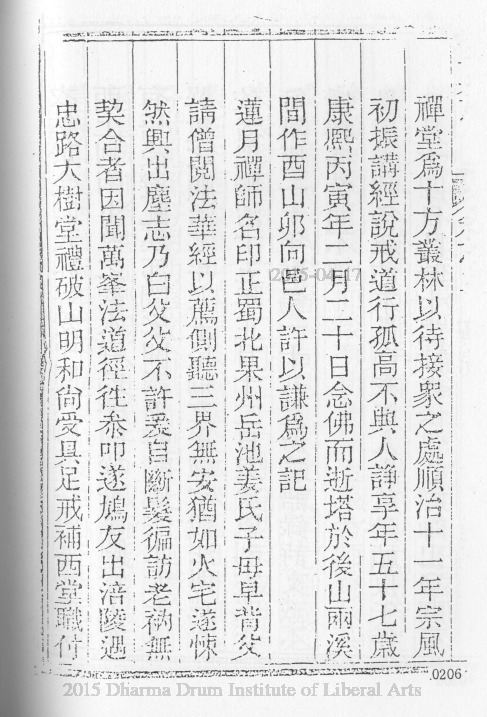 禪堂爲十方叢林以待接衆之處順治十一年宗風
初振講經說戒道行孤高不與人諍享年五十七歲
康熙丙寅年二月二十日念佛而逝塔於後山兩溪
間作酉山卯向邑人許以謙爲之記
蓮月禪師名印正蜀北果州岳池姜氏子母早背父
請僧閱法華經以薦側聽三界無安猶如火宅遂悚
然興出塵志乃白父父不許爰自斷髮徧訪老衲無
契合者因聞萬峯法道徑徃叅叩遂鳩友出涪陵遇
忠路大樹堂禮破山明和尙受具足戒補西堂職付
2015-04-17
0206
2015 Dharma Drum Institute of Liberal Arts